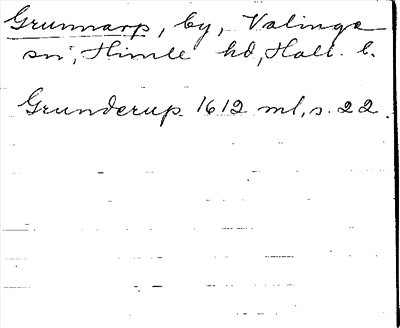 Grunnarp, by, Valinge
sn, Himle hd, Hall. l.
Grunderup 1612 ml, s. 22.